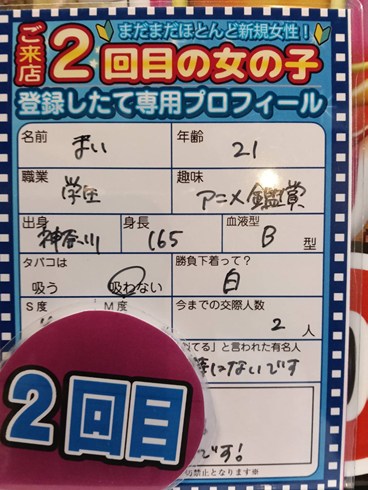 まだまだほとんど新規女性!
ご来店2回目の女の子
登録したて専用プロフィール
名前 まい 年齢 21
職業 学生 趣味 アニメ鑑賞
出身 神奈川 身長 165 血液型 B 型
タバコは 吸う 吸わない 勝負下着って? 白
S度 M度 今までの交際人数 2人
てる」と言われた有名人
にないです
2回目
です!
禁止となります※